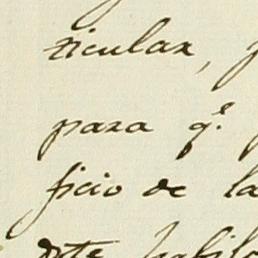 ticular, p
para q.e
ficio de la